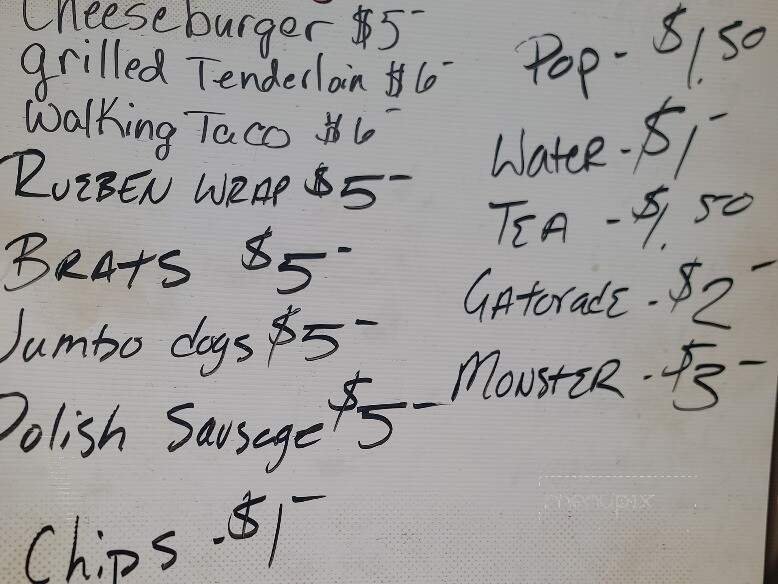 Cheeseburger $5-
grilled Tenderloin $6-
Walking Taco $6-
RUEBEN WRAP $5-
BRATS $5-
Jumbo dogs $5-
Polish Sausage $5-
Chips - $1-
Pop - $1.50
WATER - $1-
TEA - $1.50
GATORADE - $2-
MONSTER - $3-
menupix